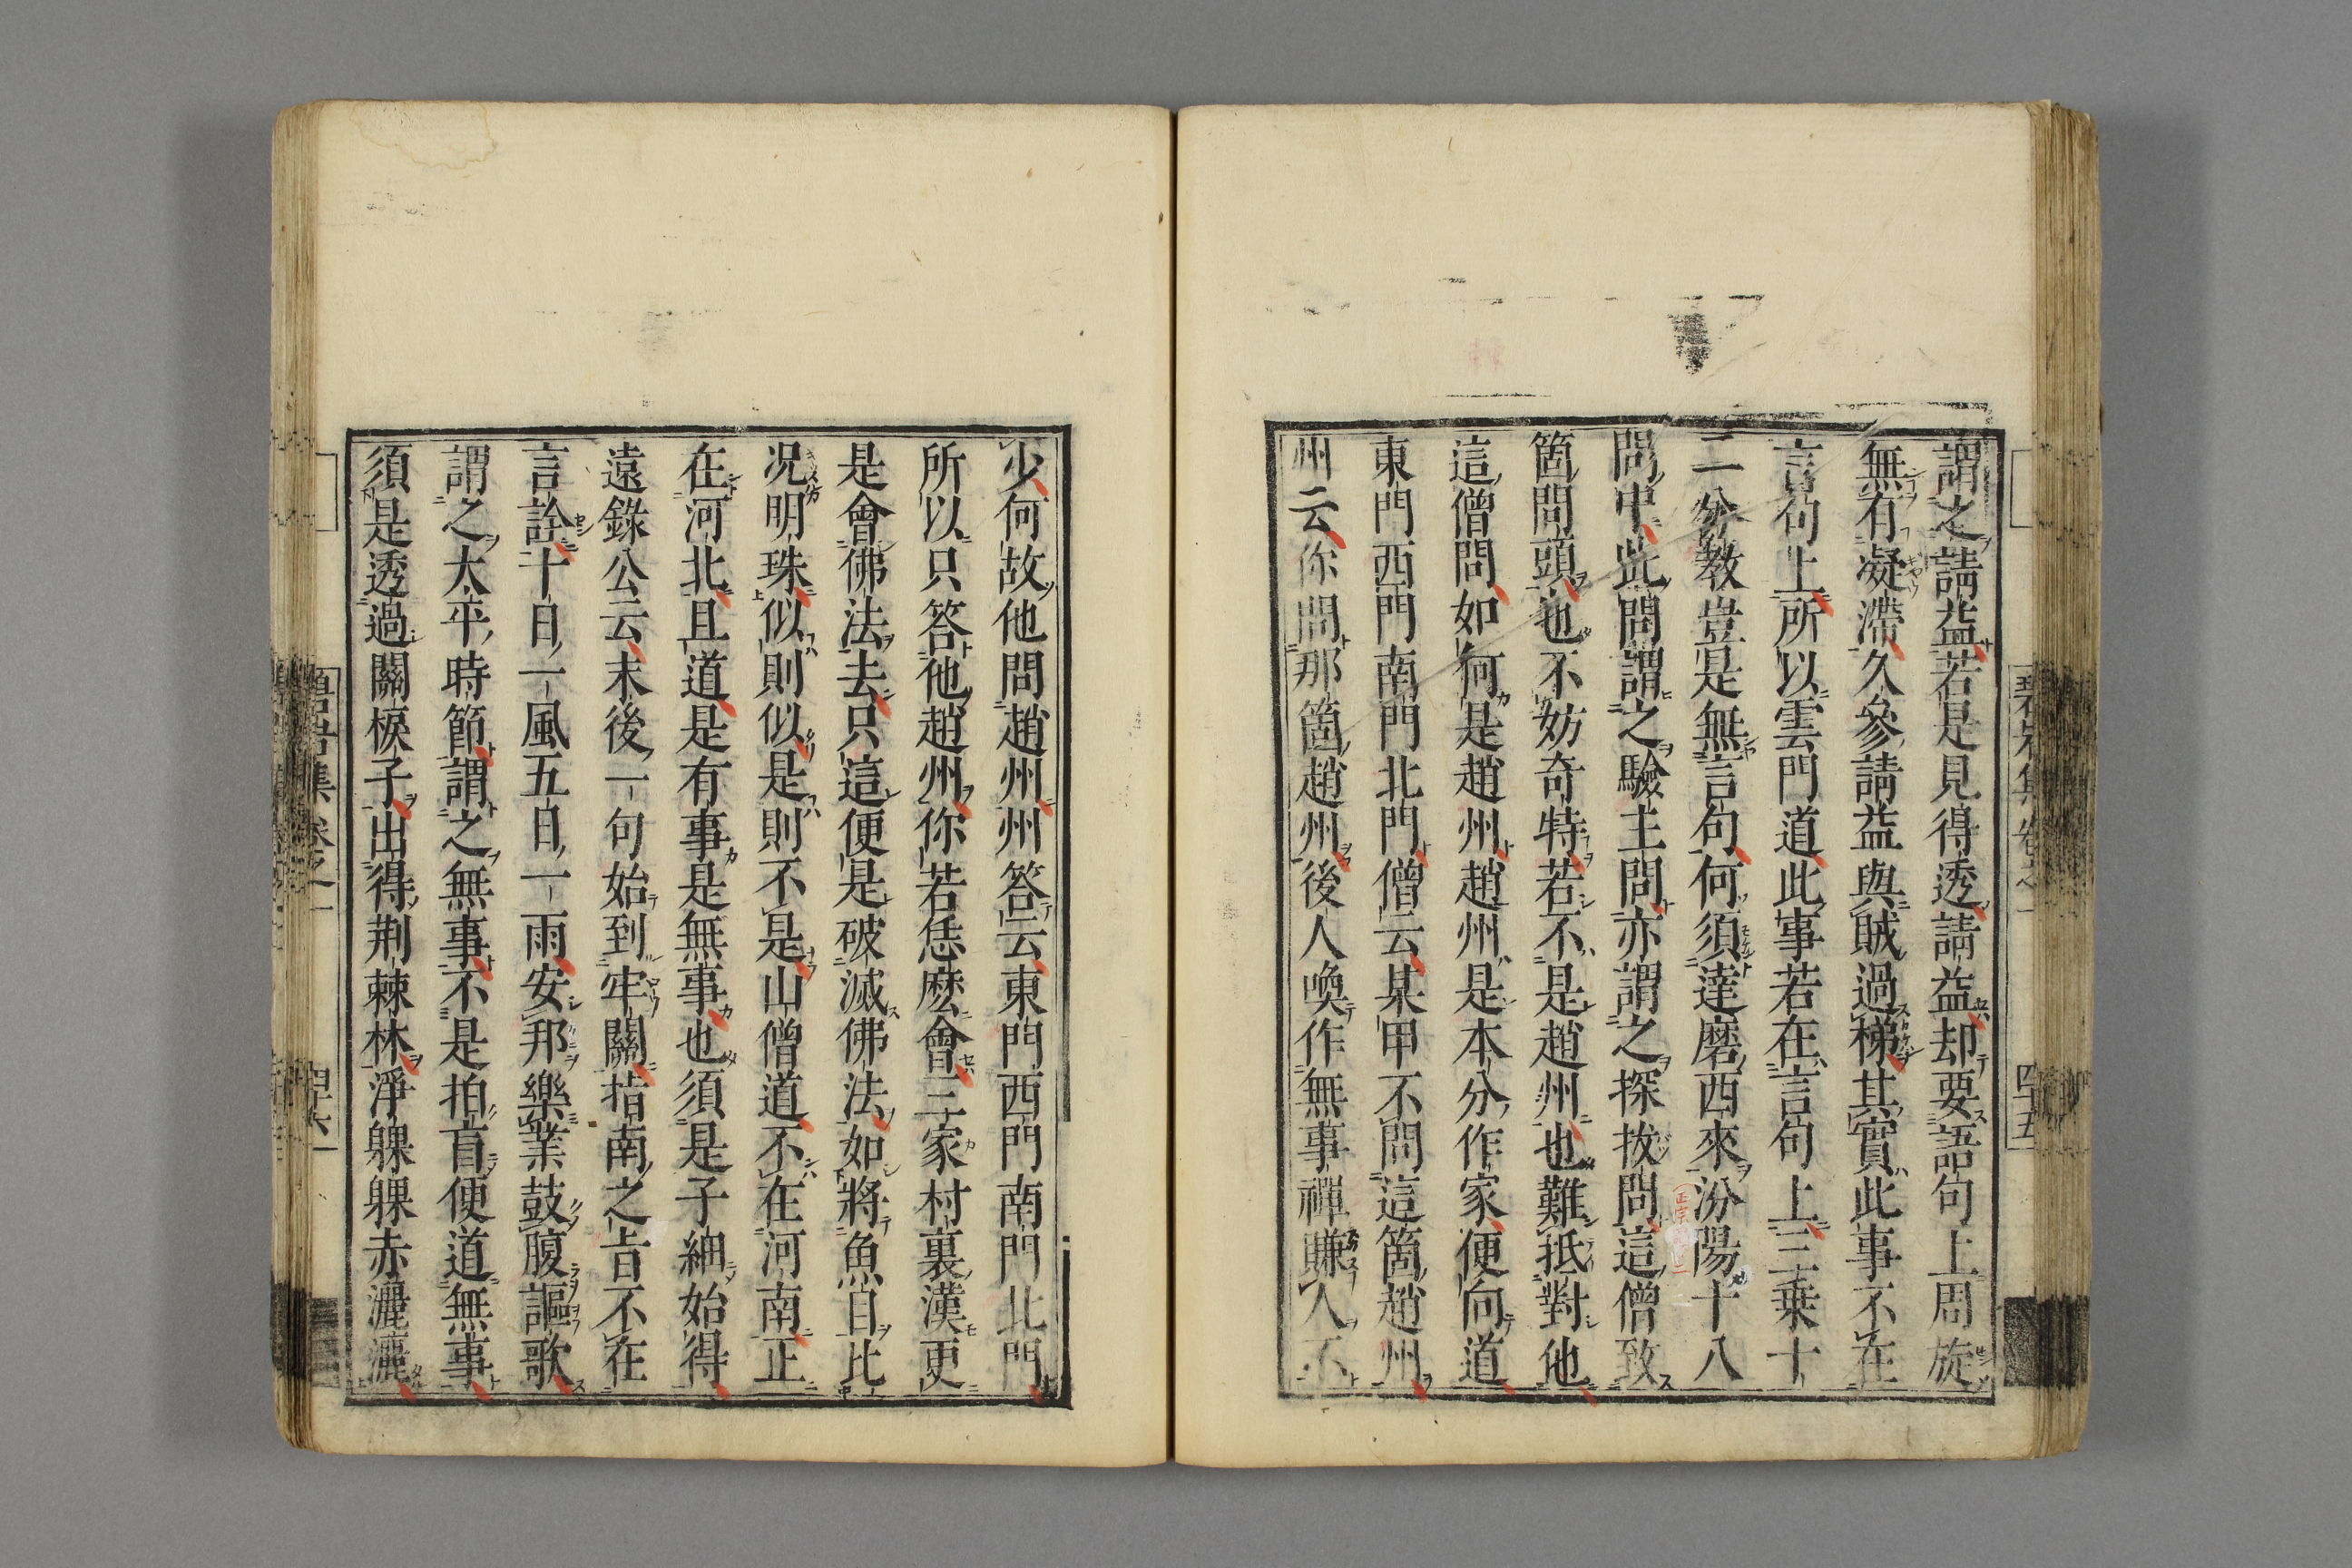 謂之請益若是見得透請益却要語句上周旋
無有凝滯久參請益與賊過梯其實此事不在
言句上所以雲門道此事若在言句上三乗十
二分教豈是無言句何須達磨西來汾陽十八
問中此問謂之驗主問亦謂之探拔問這僧致
箇問頭也不妨奇特若不是趙州也難抵對他
這僧問如何是趙州趙州是本分作家便向道
東門西門南門北門僧云某甲不問這箇趙州
州云你問那箇趙州後人喚作無事禪賺人不
少何故他問趙州州答云東門西門南門北門
所以只答他趙州你若恁麽會三家村裏漢更
是會佛法去只這便是破滅佛法如將魚目比
况明珠似則似是則不是山僧道不在河南正
在河北且道是有事是無事也須是子細始得
遠錄公云末後一句始到牢關指南之旨不在
言詮十日一風五日一雨安邦樂業鼓腹謳歌
謂之太平時節謂之無事不是拍盲便道無事
須是透過關棙子出得荆棘林淨躶躶赤灑灑